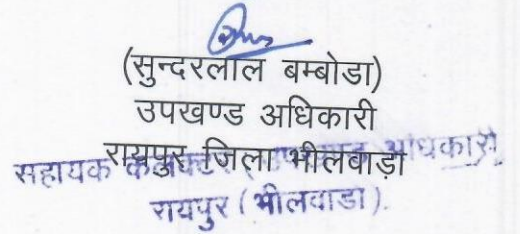 (सुन्दरलाल बम्बोडा)
उपखण्ड अधिकारी
रायपुर जिला भीलवाड़ा
सहायक कलक्टर अधिकारी
रायपुर (भीलवाडा).